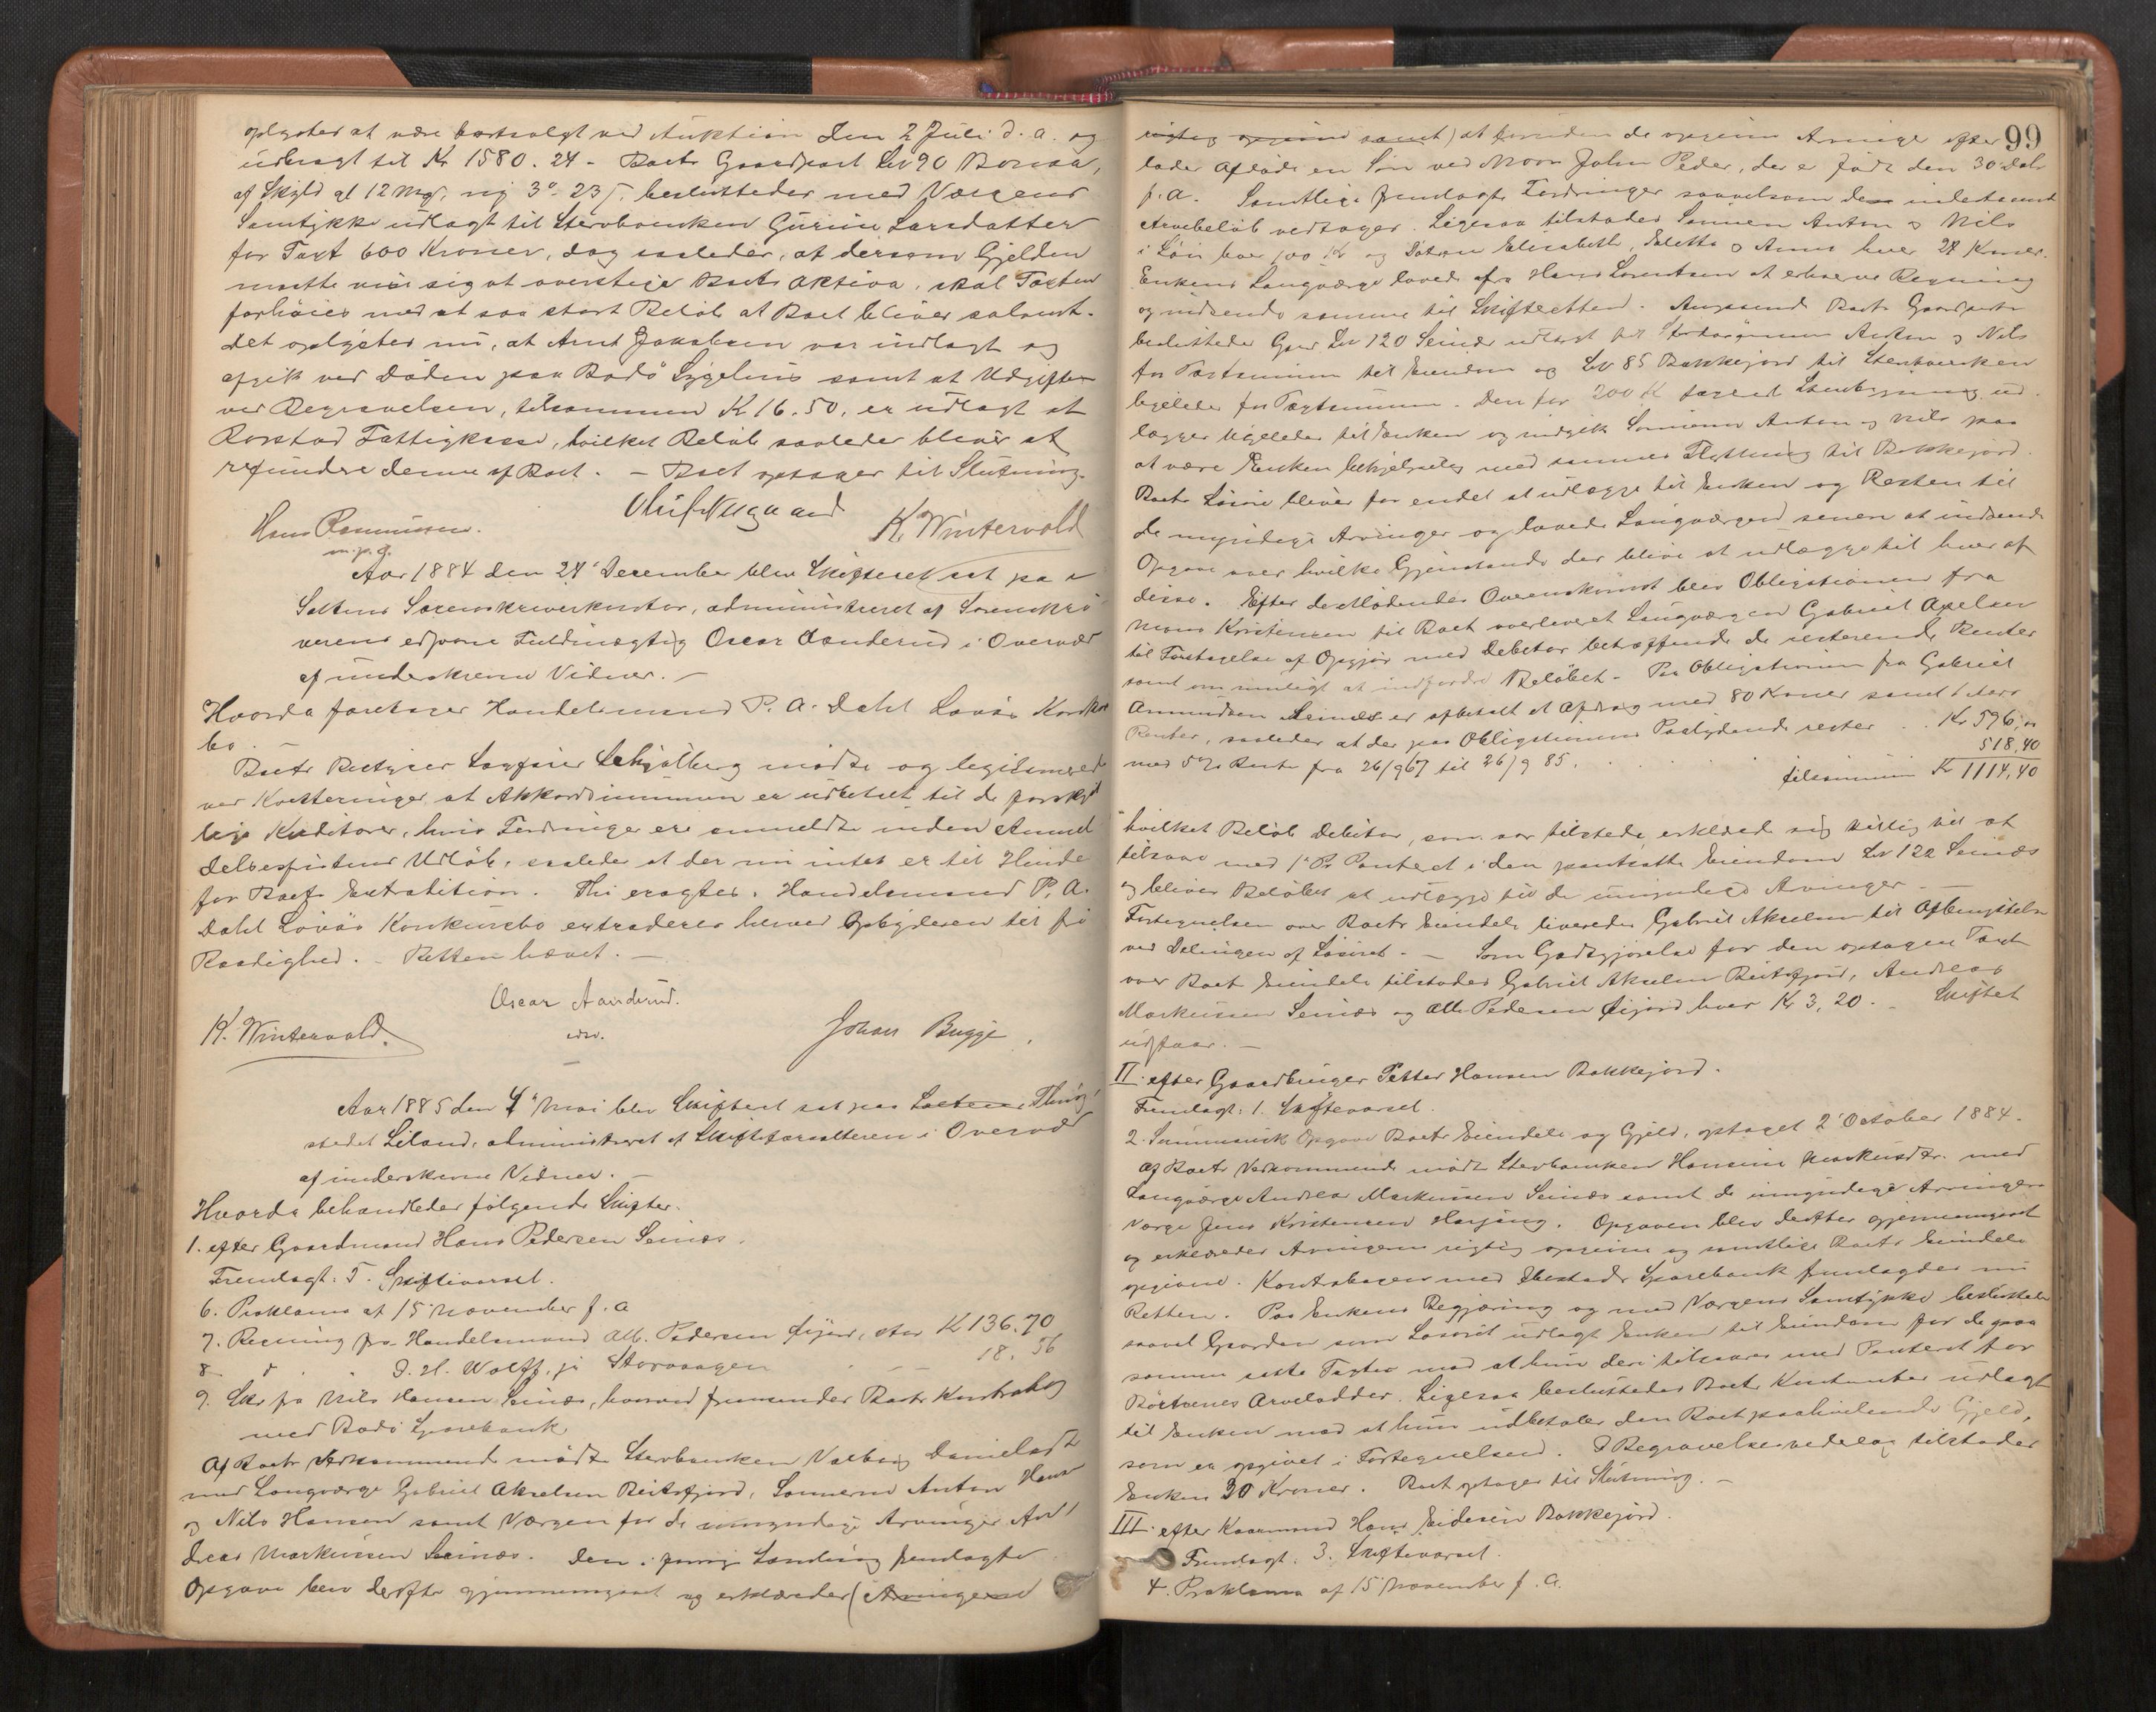 oplystes at være bortsolgt ved Auktion den 2 Juli d. a. og
udbragt til Kr 1580. 24 - Boets Gaardpart Lno 90
af Skyld gl 12 mg, ny 3 o. 23 s. besluttedes med Værgens
Samtykke udlagt til Stervboenken Gurine Larsdatter
for Taxt 600 Kroner, dog saaledes, at dersom Gjelden
maatte vise sig at overstige Boets Aktiva, skal Taxten
forhöies med et saa stort Belöb at Boet bliver solvent.
Det oplystes nu, at Arnt Jakobsen var indlagt og
afgik ved Döden paa Bodö Sygehus samt at Udgiften
ved Begravelsen, tilsammen K 16. 50. er udlagt af
Rorstad Fattigkasse, hvilket Belöb saaledes bliver at
refundere denne af Boet. - Boet optages til Slutning.
Hans Rasmussen. K. Wintervold
m. p. P.
Aar 1884 den 24' December blev Skifteret sat paa
Saltens Sorenskriverkontor, administreret af Sorenskri-
verens edsvorne Fuldmægtig Oscar Aanderud i Overvær
af underskrevne Vidner. -
Hvorda foretages Handelsmand P. A. Dahl Lovös Konkurs
bo. -
Boets Bestyrer Sagförer Schjölberg mödte og legitimerede
ved Kvitteringer at Akkordsummen er udbetalt til de forskjel
lige Kreditorer, hvis Fordringer ere anmeldte inden Anmel
delsesfristens Udlöb, saaledes at der nu intet er til Hinder
for Boets Extradition. Thi eragtes: Handelsmand P. A.
Dahl Lovös Konkursbo extraderes herved Opbyderen til fri
Raadighed. - Retten hævet. -
Oscar Aanderud.
K. Wintervold. edsv. Johan Bugge.
Aar 1885 den 4' Mai blev Skifteret sat paa Thing-
stedet Liland, administreret af Skifteforvalteren i Overvær
af underskrevne Vidner. -
Hvorda behandledes fölgende Skifter.
1. efter Gaardmand Hans Pedersen Seines.
Fremlagt: 5. Skiftevarsel.
6. Proklama af 15 November f. a
7. Regning fra Handelsmand Alb. Pedersen stor K 136.70
8. " " J. H. Wolff, jr Storvaagen - - 18. 56
9. Skr. fra Nils Hansen Seines, hvorved fremsender Boets Kontrabog
med Bodö Sparebank
Af Boets Vedkommende mödte Stervboenken Valborg Danielsdtr
med Laugværge Gabriel Akselsen Reitsfjord, Sönnerne Anton Hans
og Nils Hansen samt Værgen for de umyndige Arvinger An-
dreas Markussen Seines. Den i forrige Samling fremlagte
Opgave blev derefter gjennemgaaet og erklæredes (Arvingerne
99
rigtig opgivne samt) at foruden de opgivne Arvinger efter
lader Aflöde en Sön ved Navn John Peder, der er födt den 30 Dcbr
f. a. Samtlige fremlagte Fordringer saavelsom
Arvebelöb vedtages. Ligesaa tilstodes Sönnen Anton og Nils
i Lön hver 100 Kr og Dötrene Elisabeth, og Anne hver 24 Kroner.
Enkens Laugværge lovede fra Hans Lorentsen at erhverve Regning
og indsende samme til Skifteretten. Angaaende Boets Gaardparter
besluttedes Gaard Lno 120 Seines udlagt til Anton og Nils
for Taxtsummen til Eiendom og Lno 85 Bakkejord til Stervboenken
ligeledes for Taxtsummen. Den for 200 K taxerede ud
lægges ligeledes til Enken og indgik Sönnerne Anton og Nils paa
at være Enken behjelpelig med sammes Flytning til Bakkejord.
Boets Lösöre bliver for endel at udlægge til Enken og Resten til
de myndige Arvinger og lovede Laugværgen senere at indsende
Opgave over hvilke Gjenstande der blive at udlægge til hver af
disse. Efter de Mödendes Overenskomst blev Obligationen fra
Mons Kristensen til Boet overleveret Laugværgen Gabriel Axelsen
til Foretagelse af Opgjör med Debitor betræffende de resterende Renter
samt om muligt at indfordre Belöbet. - Paa Obligationen fra Gabriel
Amundsen Seines er afbetalt et Afdrag med 80 Kroner samt 1 Aars
Renter, saaledes at der paa Obligationens Paalydende rester . . Kr 596, "
med 5% Rente fra 26/9 67 til 26/9 85. . . . . . . 518,40
tilsammen Kr 1114,40
hvilket Belöb Debitor, som var tilstede, erklærede sig villig til at
tilsvare med 1' Pr. Panteret i den pantsatte Eiendom Lno 122 Seines
og bliver Belöbet at udlægge til de umyndige Arvinger. -
Fortegnelsen over Boets Eiendele leveredes Gabriel Akselsen til Afbenyttelse
ved Delingen af Lösöret. - Som Godtgjörelse for den optagne Taxt
over Boets Eiendele tilstodes Gabriel Akselsen Reitsfjord, Andreas
Markussen Seines og Alb Pedersen hver Kr 3,20. - Skiftet
udstaar. -
II. efter Gaardbruger Petter Hansen Bakkejord.
Fremlagt: 1. Skiftevarsel.
2. Summarisk Opgave Boets Eiendele og Gjeld, optaget 2' October 1884.
Af Boets Vedkommende mödte Stervboenken Hansine Markusdtr. med
Laugværge Andreas Markussen Seines samt de umyndige Arvingers
Værge Jens Kristensen. Opgaven blev derefter gjennemgaaet
og erklæredes Arvingerne rigtig opgivne og samtlige Boets Eiendele
opgivne. Kontrabogen med Ibestad Sparebank fremlagdes i
Retten. Paa Enkens Begjæring og med Værgens Samtykke besluttedes
saavel Gaarden som Lösöret udlagt Enken til Eiendom for de paa
samme satte Taxter mod at hun deri tilsvarer med Panteret for
Börnenes Arvelodder. Ligesaa besluttedes Boets Kontanter udlagt
til Enken mod at hun udbetaler den Boet paahvilende Gjeld,
som er opgivet i Fortegnelsen. I Begravelsesvederlag tilstodes
Enken 30 Kroner. Boet optages til Slutning. -
III. efter Kaarmand Hans Bakkejord.
Fremlagt: 3. Skiftevarsel.
4. Proklama af 15 November f. a.